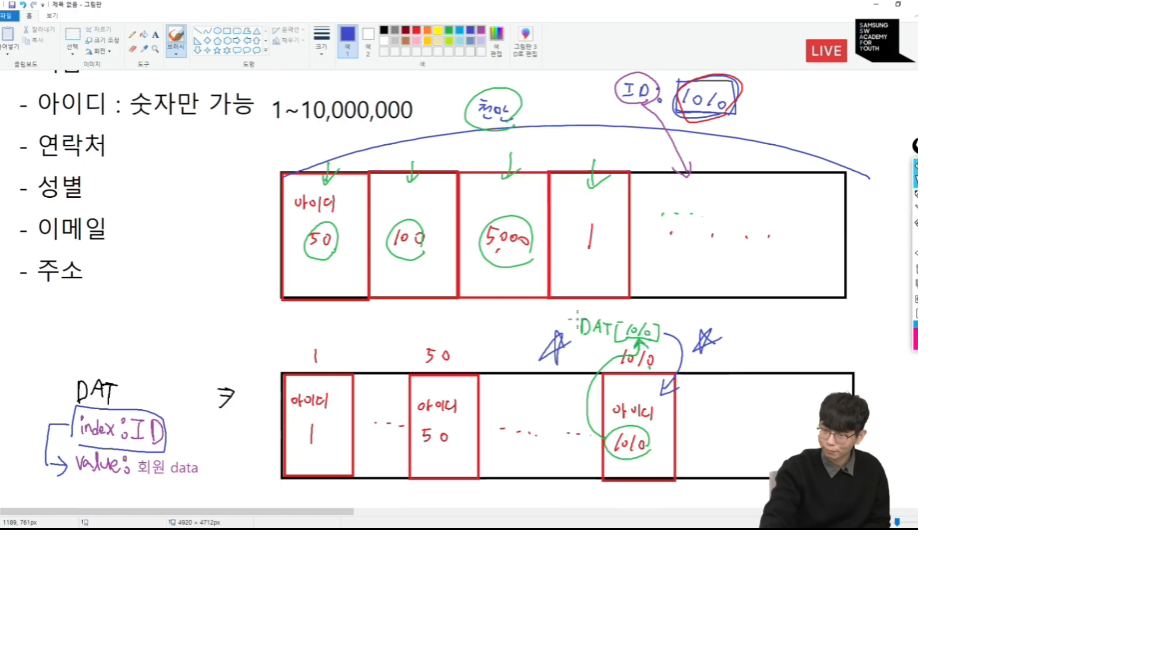 제목 없음 - 그림판
파일 홈 보기
잘라내기
복사
붙여넣기
선택
자르기
크기 조정
회전
브러시
윤곽선
채우기
크기
색 1
색 2
색 편집
그림판 3D로 편집
클립보드
이미지
도구
도형
색
LIVE
SAMSUNG
SW
ACADEMY
FOR
YOUTH
- 아이디 : 숫자만 가능 1~10,000,000
- 연락처
- 성별
- 이메일
- 주소
천만
ID: 1010
아이디
50
100
5000
1
DAT[1010]
1 50 1010
DAT
index: ID
value: 회원 data
아이디
1
아이디
50
아이디
1010
1189, 761px
4920 × 4712px